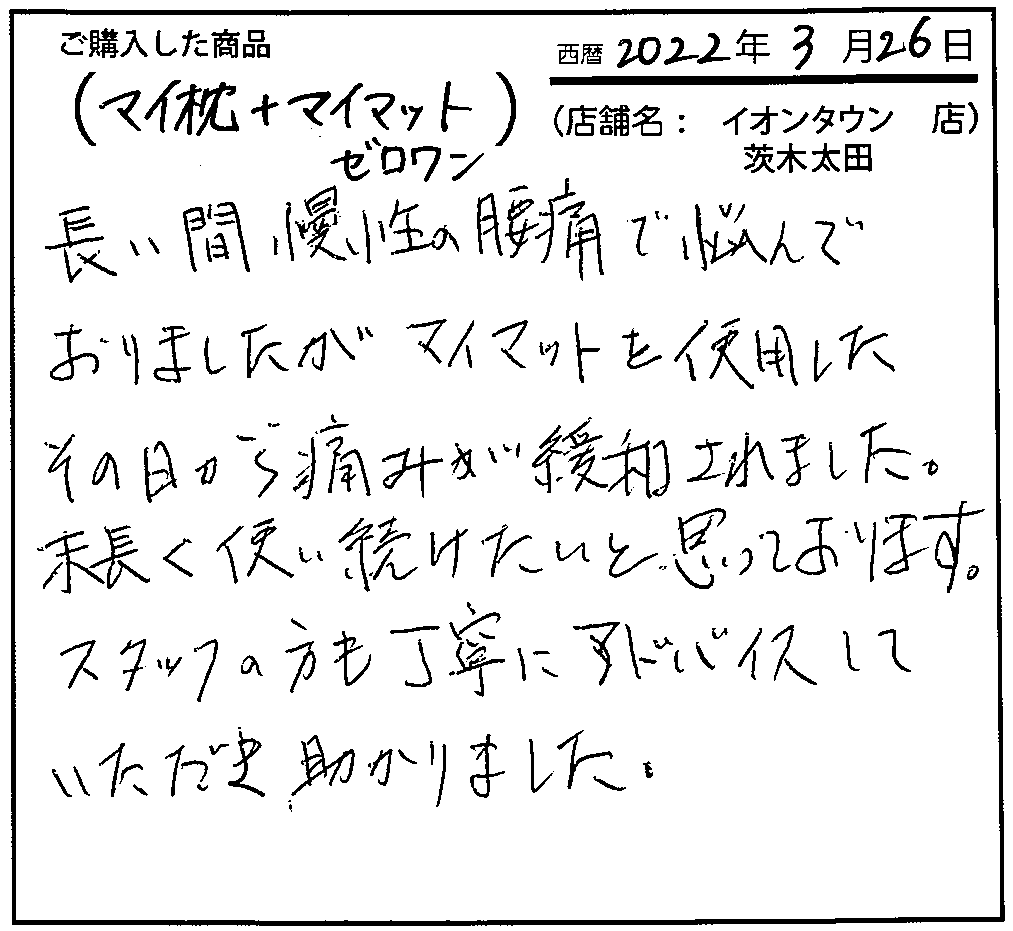 ご購入した商品
西暦 2022年 3月26日
(マイ枕+マイマット)
ゼロワン
(店舗名: イオンタウン 店)
茨木太田
長い間、慢性の腰痛で悩んで
おりましたがマイマットを使用した
その日から痛みが緩和されました。
末長く使い続けたいと思っております。
スタッフの方も丁寧にアドバイスして
いただき助かりました。